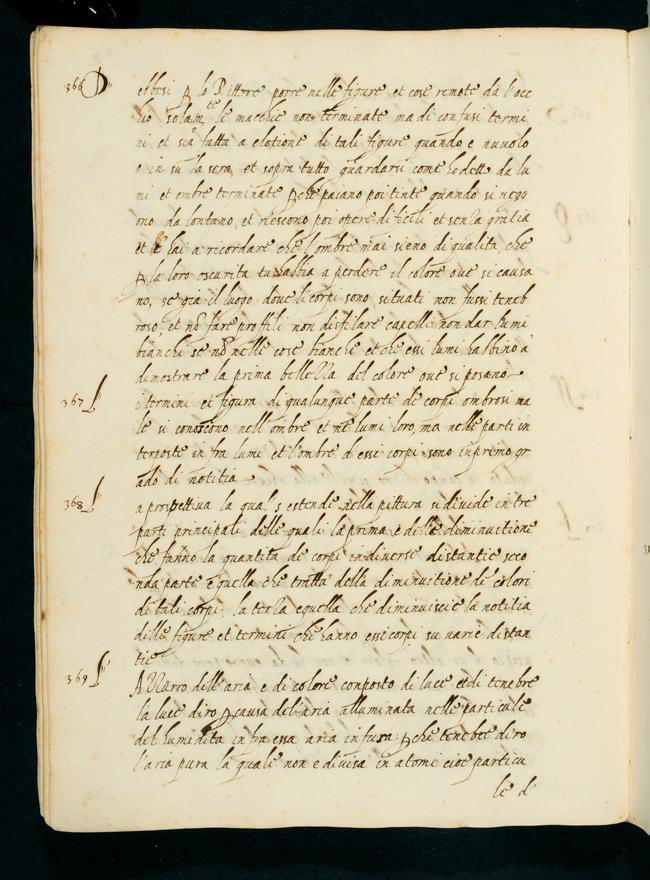 366 D
ebbesi p lo Pittore porre nelle figure et cose remote da l'occ
hio solamte le macchie non terminate ma di confusi termi
ni et sia fatta a eletione di tali figure quando e nuvolo
o in su la sera et sopra tutto guardarsi come ho detto da lu
mi et ombre terminate pche paiano poi tinte quando si vegg
ono da lontano, et riescono poi opere dificili et senza gratia
et ti hai a ricordare che l'ombre mai sieno di qualita, che
p la loro oscurita tu habbia a perdere il colore oue si causa
no, se gia il luogo doue li corpi sono situati non fussi teneb
roso, et nō fare proffili non disfilare capelli non dar lumi
bianchi se nō nelle cose bianche et che essi lumi habbino a
dimostrare la prima bellezza del colore oue si posano
367 I
i termini et figura di qualunque parte de corpi ombrosi ma
le si conoscono nell'ombre et ne lumi loro, ma nelle parti in
terposte in fra lumi et l'ombre d essi corpi sono in primo gr
ado di notitia
368 L
a prospettiva la qual s estende nella pittura si divide in tre
parti principali delle quali la prima e della diminuitione
che fanno la quantita de corpi in diverse distantie seco
nda parte e quella che tratta della diminuitione de colori
di tali corpi la terza e quella che diminuisce la notitia
delle figure et termini che hanno essi corpi su varie distan
tie
369 L
Azzurro dell'aria e di colore conposto di luce et di tenebre
la luce diro p causa del'aria alluminata nelle particule
del humidita in fra essa aria infusa : pche tenebre diro
l'aria pura la quale non e divisa in atomi cioe particu
le d'